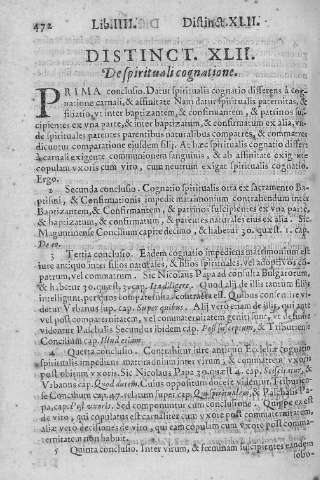 472 Lib. IIII. Distinct. XLII.
DISTINCT. XLII.
De spirituali cognatione.
PRIMA conclusio. Datur spiritualis cognatio differens à cog-
natione carnali, & affinitate Nam datur spiritualis paternitas, &
filiatio, vt inter baptizantem, & confirmantem, & patrinos sus-
cipientes ex vna parte, & inter baptizatum, & confirmatum ex alia, vn-
de spirituales patentes parentibus naturalibus compatres, & commatres
dicuntur comparatione eiusdem filij. At hæc spiritualis cognatio differt
à carnali exigente communionem sanguinis, & ab affinitate exigente
copulam vxoris cum viro, cum neutrum exigat spiritualis cognatio.
Ergo.
2 Secunda conclusio. Cognatio spiritualis orta ex sacramento Bap-
tismi, & Confirmationis impedit matrimonium contrahendum inter
Baptizantem, & Confirmantem, & patrinos suscipientes ex vna parte,
& baptizatum, & confirmatum, & parentes naturales eius ex alia. Sic
Moguntinense Concilium capite decimo, & habetur 30. quæst. 1. cap.
De eo.
3 Tertia conclusio. Eadem cognatio impediens matrimonium est
iure antiquo inter filios naturales, & filios spirituales, vel adoptivos
patrum, vel commatrum. Sic Nicolaus Papa ad consulta Bulgarorum,
& habetur 30. quæst. 3. cap. Ita diligere. Quod alij de illis tantum filijs
intelligunt, per quos compaternitas contracta est. Quibus conueni-
detur Vrbanus iup. cap. Super quibus. Alij vero etiam de illis, qui ante
vel post compaternitatem, vel commaternitatem geniti sunt, vt defini
videntur Paschalis Secundus ibidem cap. Post susceptum, & Triburiense
Concilium cap. Illud etiam.
4 Quarta conclusio. Contrahitur iure antiquo Ecclesiæ cognatio
spiritualis impediens matrimonium inter virum, & commatrem vxoris
post obitum vxoris. Sic Nicolaus Papa 30. quæst. 4. cap. Sciscitatur, &
Vrbanus cap. Quod autem. Cuius oppositum docere videntur Tiburien-
se Concilium cap. 47. relatum supri cap. Qui spiritualem, & Paschalis Pa-
pa, cap. Post vxoris. Sed componuntur cum conclusione. Quippe ea est
de viro, qui copulatus est carnaliter cum vxore post commaternitatem,
aliæ vero decisiones de viro, qui eam copulam cum vxore post comma-
ternitatem non habuit.
5 Quinta conclusio. Inter virum, & fœminam suscipientes eundem
sobo-